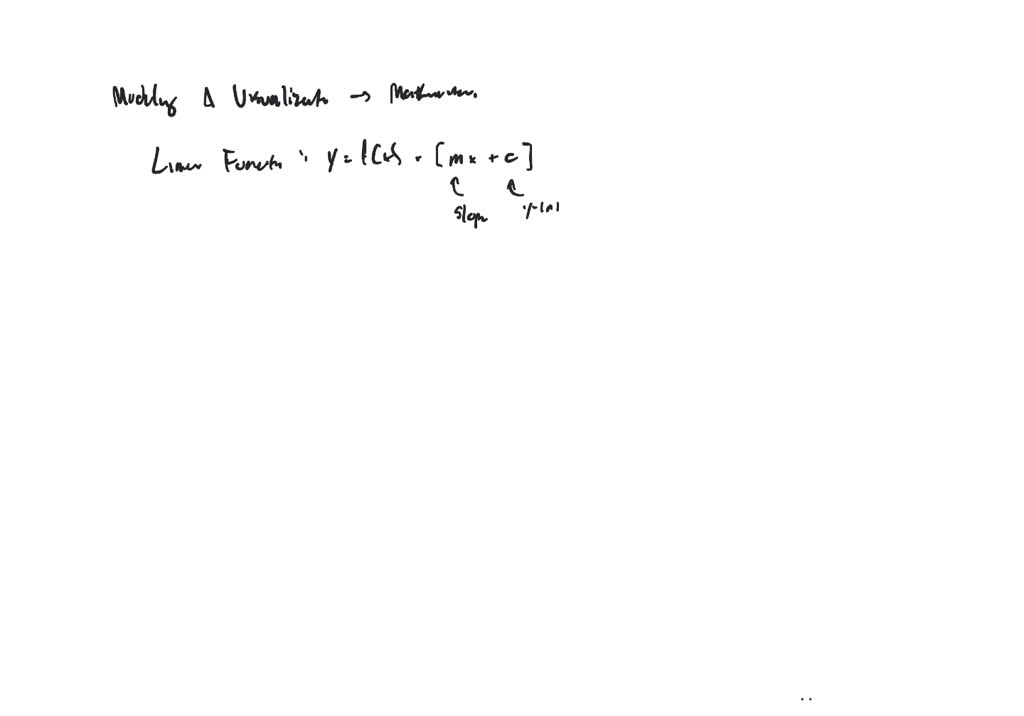 Modeling & Visualizatn → Mathematics.
Linear Functn : y = f(x) = [mx + c]
Slope y-int